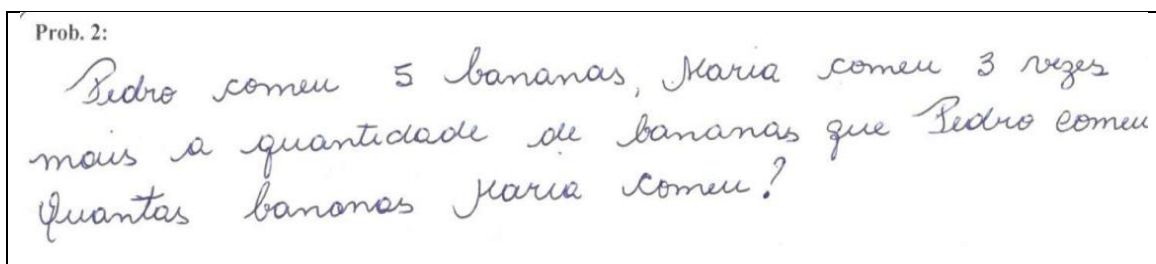 Prob. 2:
Pedro comeu 5 bananas, Maria comeu 3 vezes
mais a quantidade de bananas que Pedro comeu
Quantas bananas Maria comeu?